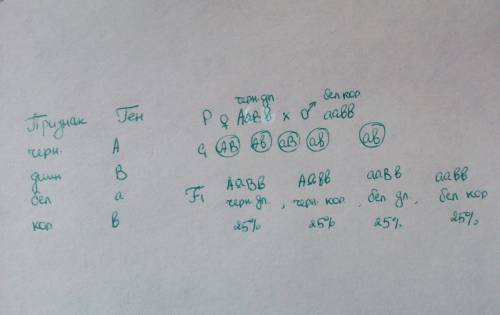 черн. дл. бел кор
Признак Ген P ♀ АаВв х ♂ аавв
черн. А G АВ Ав аВ ав ав
длин В
бел а F₁ АаВв Аавв ааВв аавв
черн дл. , черн. кор , бел дл. , бел кор
кор в 25% 25% 25% 25%